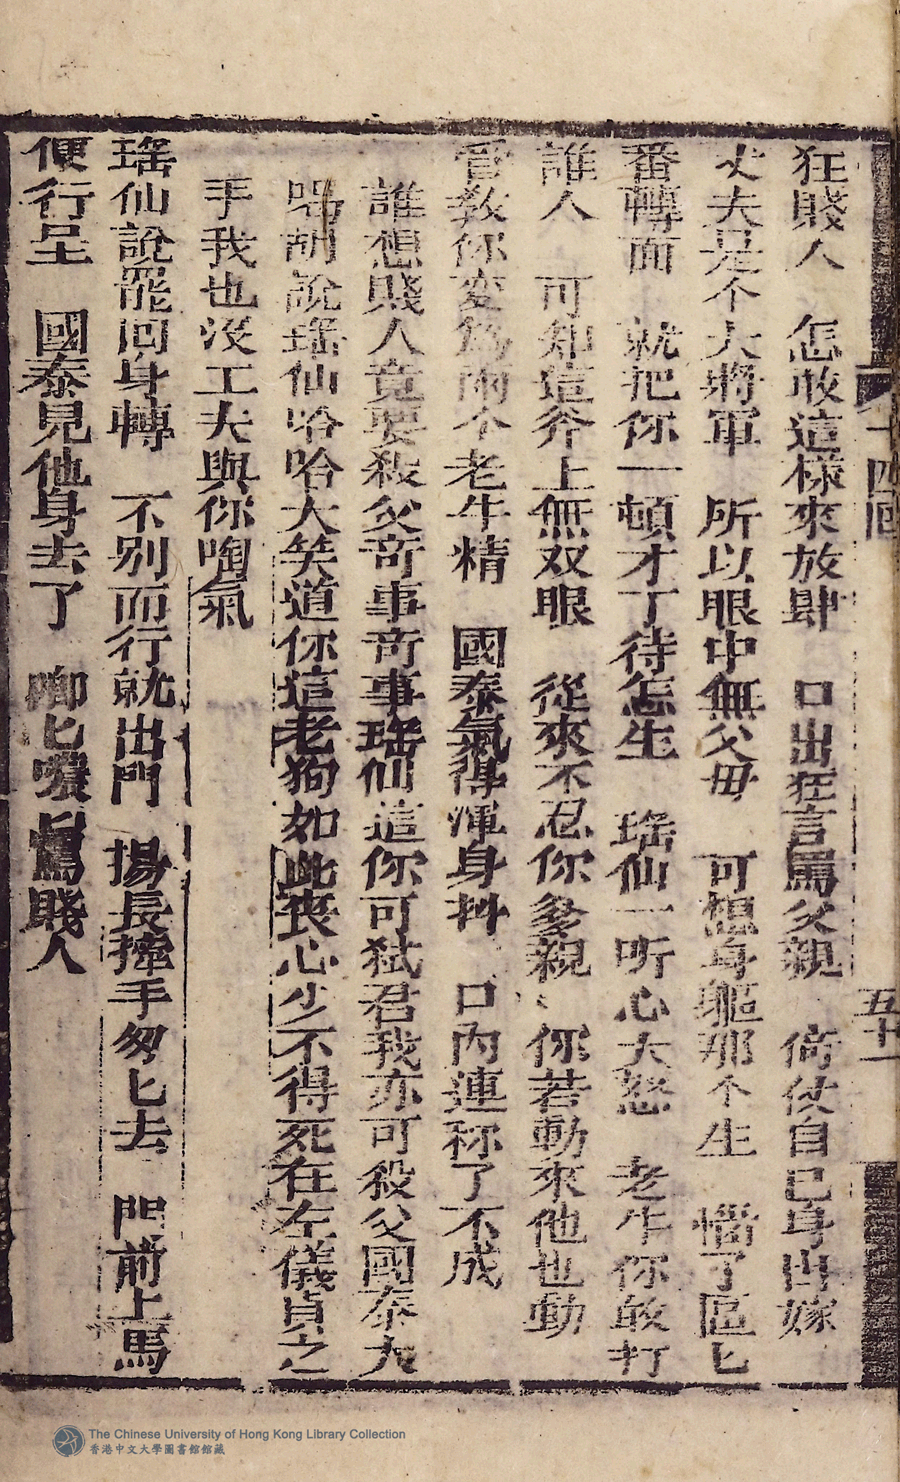 十四回 五十一
狂賤人 怎敢這樣來放肆 口出狂言罵父親 倚仗自已身出嫁
丈夫是个大將軍 所以眼中無父母 可想身軀那个生 惱了區匕
番轉面 就把你一頓才丁待怎生 瑤仙一听心大怒 老牛你敢打
誰人 可知這斧上無双眼 從來不忍你爹親 你若動來他也動
管教你変為兩个老牛精 國泰氣得渾身抖 口內連称了不成
誰想賤人竟要殺父奇事奇事瑤仙這你可弑君我亦可殺父國泰大
喝胡說瑤仙哈哈大笑道你這老狗如此丧心少不得死在左儀貞之
手我也沒工夫與你啕氣
瑤仙說罷囘身轉 不別而行就出門 揚長摔手匆匕去 門前上馬
便行呈 國泰見他身去了 啷匕噥 罵賤人
The Chinese University of Hong Kong Library Collection
香港中文大學圖書館館藏